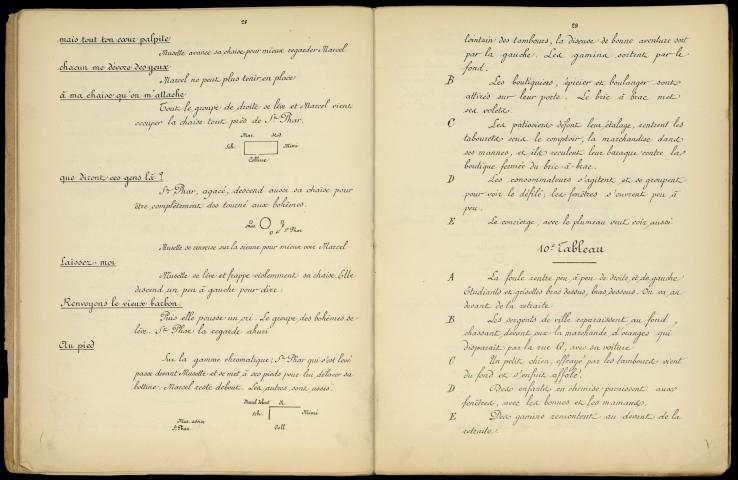 28
mais tout ton cœur palpite
Musette avance sa chaise pour mieux regarder Marcel
chacun me dévore des yeux
Marcel ne peut plus tenir en place
à ma chaise qu'on m'attache
Tout le groupe de droite se lève et Marcel vient
occuper la chaise tout près de St Phar.
Mar. Rod.
Sch. Mimi
Colline
que diront ces gens là ?
St Phar, agacé, descend aussi sa chaise pour
être complètement dos tourné aux bohêmes.
St Phar
Musette se renverse sur la sienne pour mieux voir Marcel
Laissez-moi
Musette se lève et frappe violemment sa chaise. Elle
descend un peu à gauche pour dire:
Renvoyons le vieux barbon
Puis elle pousse un cri. Le groupe des bohêmes se
lève. St Phar la regarde ahuri
Au pied
Sur la gamme chromatique, St Phar qui s'est levé
passe devant Musette et se met à ses pieds pour lui délacer sa
bottine. Marcel reste debout. Les autres sont assis.
Marcel debout Ro.
Sch. Mimi
Mus. assise
St Phar. Coll.
29
lointain des tambours, la diseuse de bonne aventure sort
par la gauche. Les gamins sortent par le
fond.
B Les boutiquiers, épicier et boulanger sont
attirés sur leur porte. Le bric à brac met
ses volets.
C Les pâtissiers défont leur étalage, rentrent les
tabourets sous le comptoir, la marchandise dans
ses mannes, et ils reculent leur baraque contre la
boutique fermée du bric-à-brac.
D Les consommateurs s'agitent et se groupent
pour voir le défilé; les fenêtres s'ouvrent peu à
peu.
E Le concierge, avec le plumeau veut voir aussi
10e Tableau
A La foule rentre peu à peu de droite et de gauche
Etudiants et grisettes bras dessus, bras dessous. On va au
devant de la retraite
B Les sergents de ville reparaissent au fond,
chassant devant eux la marchande d'oranges qui
disparait par la rue A, avec sa voiture
C Un petit chien, effrayé par les tambours vient
du fond et s'enfuit affolé!
D Des enfants en chemise paraissent aux
fenêtres, avec les bonnes et les mamans.
E Des gamins remontent au devant de la
retraite.